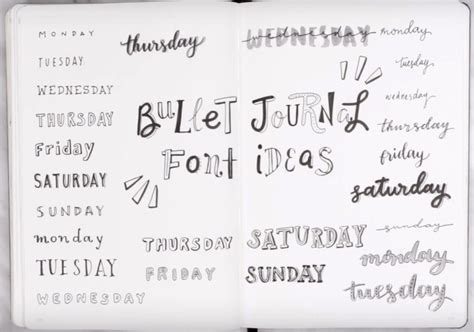 MONDAY
TUESDAY
WEDNESDAY
THURSDAY
Friday
SATURDAY
SUNDAY
monday
TUESDAY
WEDNESDAY
thursday
BuLLET JOURNAL
FONT iDEAS
THURSDAY
FRIDAY
WEDNESDAY
SATURDAY
SUNDAY
monday
tuesday
wednesday
thursday
friday
saturday
sunday
monday
tuesday